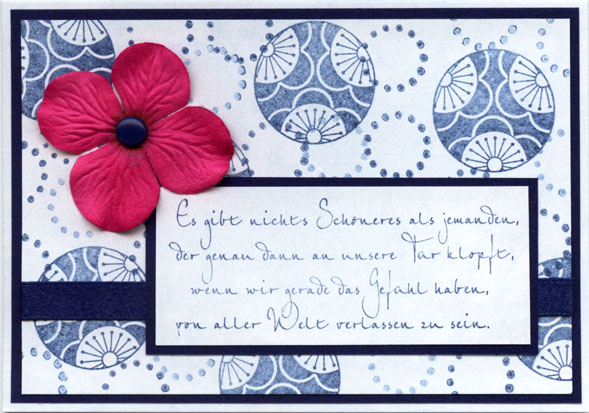 Es gibt nichts Schöneres als jemanden,
der genau dann an unsere Tür klopft,
wenn wir gerade das Gefühl haben,
von aller Welt verlassen zu sein.